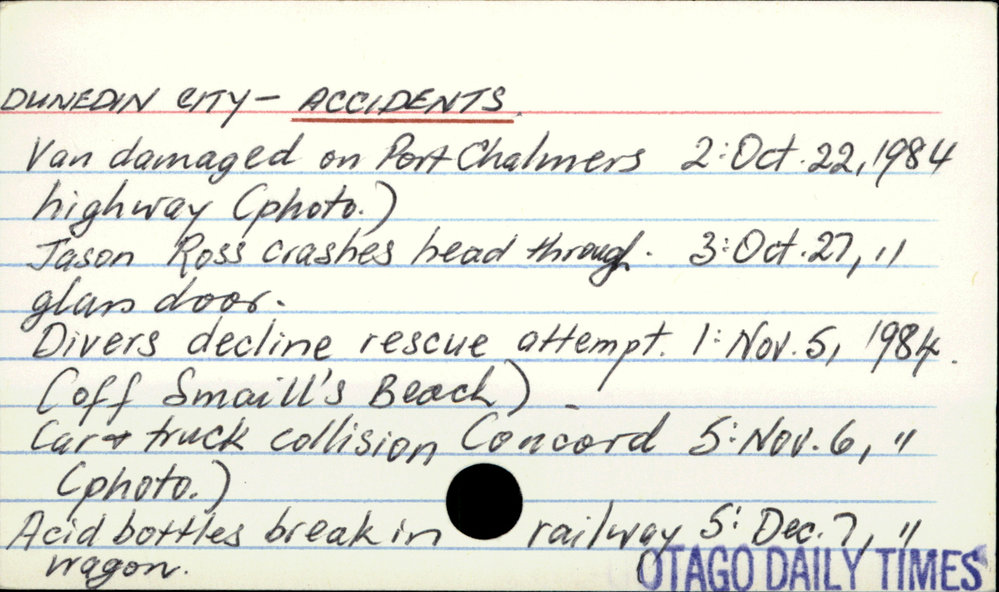 DUNEDIN CITY - ACCIDENTS.
Van damaged on Port Chalmers 2: Oct. 22, 1984
highway (photo.)
Jason Ross crashes head through. 3: Oct. 27, "
glass door.
Divers decline rescue attempt. 1: Nov. 5, 1984.
(off Smaill's Beach)
Car + truck collision Concord 5: Nov. 6, "
(photo.)
Acid bottles break in railway 5: Dec. 7, "
wagon.
OTAGO DAILY TIMES